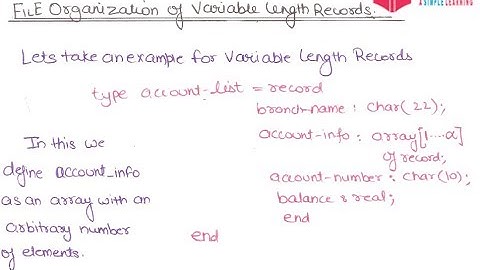 FILE Organization of Variable Length Records.
A SIMPLE LEARNING
Lets take an example for Variable Length Records
type account-list = record
branch-name : char(22);
account-info : array[1....α]
of record;
account-number : char(10);
balance : real;
end
end
In this we
define account_info
as an array with an
arbitrary number
of elements.